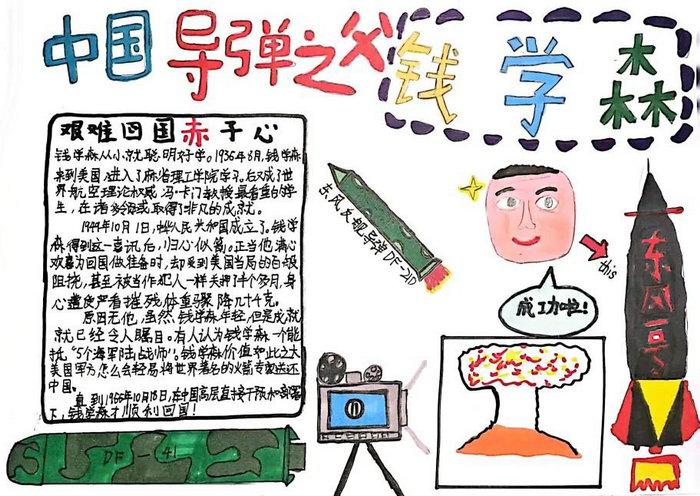 中国导弹之父钱学森
艰难回国赤子心
钱学森从小就聪明好学。1935年8月,钱学森
来到美国,进入了麻省理工学院学习。后又成了世
界航空理论权威冯·卡门教授最看重的学
生,在诸多领域取得了非凡的成就。
1949年10月1日,中华人民共和国成立了。钱学
森得到这一喜讯后,归心似箭。正当他满心
欢喜为回国做准备时,却受到美国当局的百般
阻挠,甚至被当作犯人一样关押了半个多月,身
心遭受严重摧残,体重骤降几十斤。
原因无他,虽然钱学森年轻,但是成就
就已经令人瞩目。有人认为钱学森一个能
抵“5个海军陆战师”。钱学森价值如此之大
美国军方怎么会轻易将世界著名的火箭专家送还
中国。
直到1955年10月18日,在中国高层直接干预和部署
下,钱学森才顺利回国!
东风反舰导弹DF-21D
this
成功啦!
东风一号
DF-41